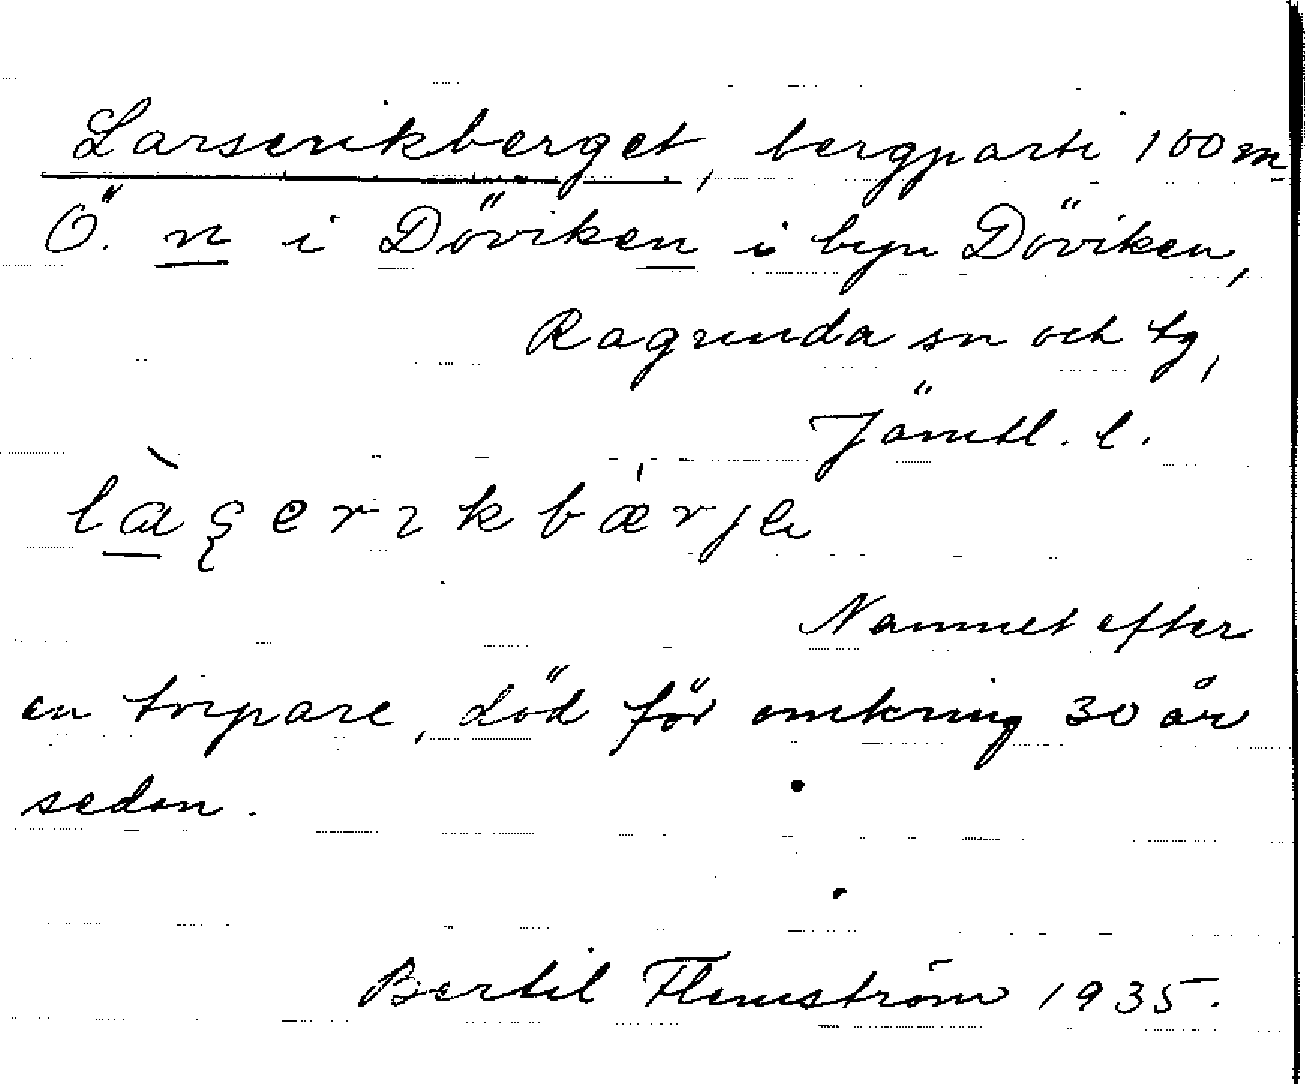 Larserikberget, bergparti 100 m
Ö. n i Döviken i byn Döviken,
Ragunda sn och tg,
Jämtl. l.
Namnet efter
en torpare, död för omkring 30 år
sedan.
Bertil Flemström 1935.